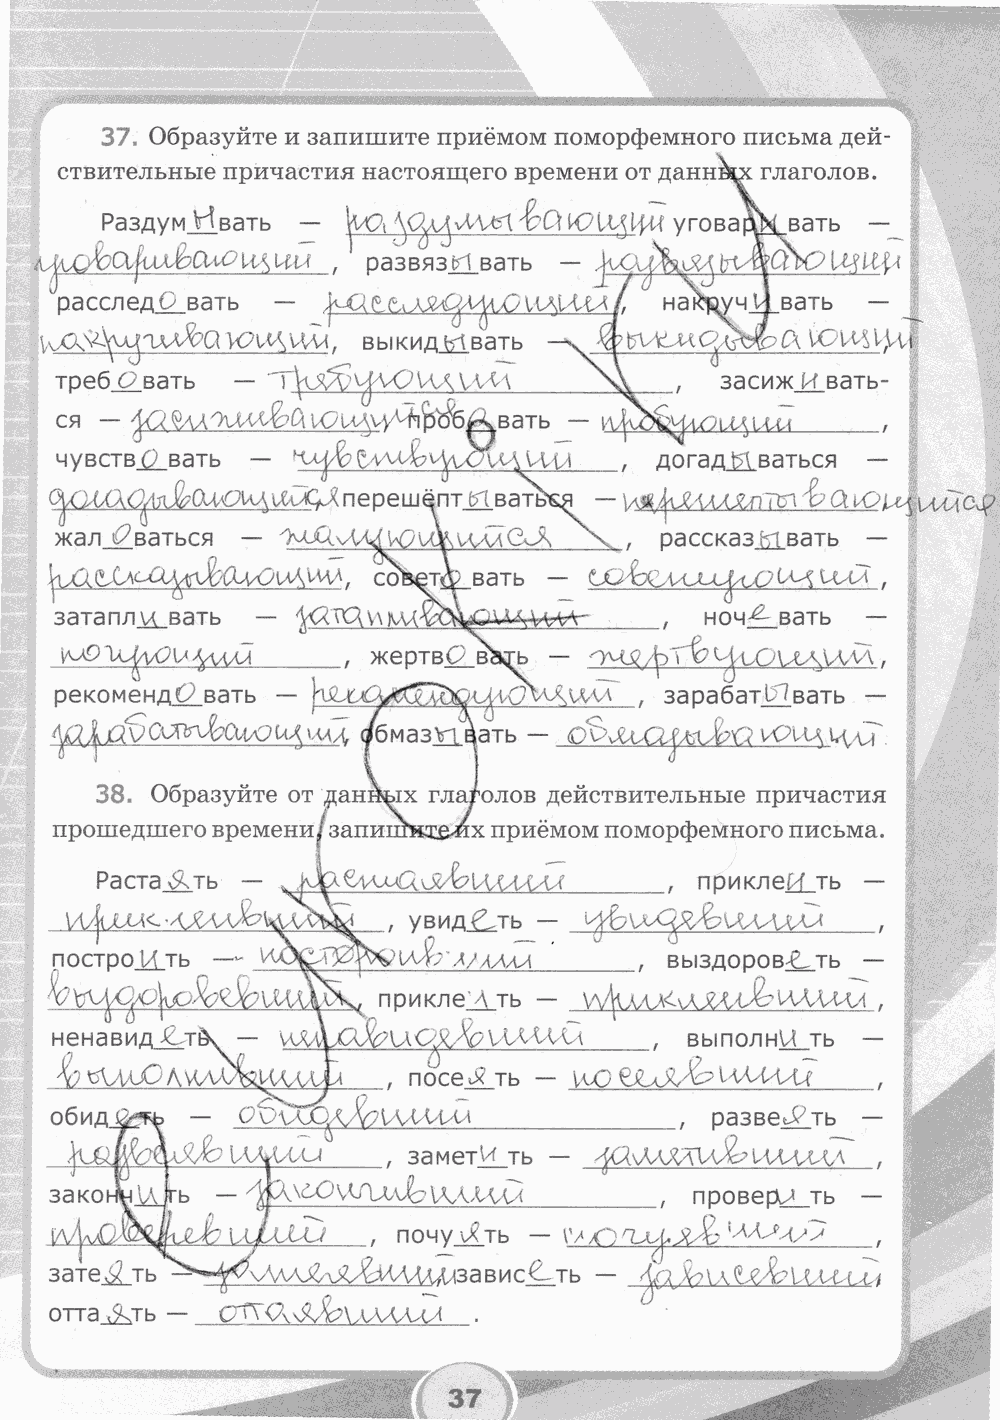 37. Образуйте и запишите приёмом поморфемного письма дей-
ствительные причастия настоящего времени от данных глаголов.
Раздумывать — раздумывающий уговаривать —
уговаривающий, развязывать — развязывающий,
расследовать — расследующий, накручивать —
накручивающий, выкидывать — выкидывающий,
требовать — требующий, засиживать-
ся — засиживающийся, пробовать — пробующий,
чувствовать — чувствующий, догадываться —
догадывающийся, перешёптываться — перешептывающийся
жаловаться — жалующийся, рассказывать —
рассказывающий, советовать — советующий,
затапливать — затапливающий, ночевать —
ночующий, жертвовать — жертвующий,
рекомендовать — рекомендующий, зарабатывать —
зарабатывающий, обмазывать — обмазывающий
38. Образуйте от данных глаголов действительные причастия
прошедшего времени, запишите их приёмом поморфемного письма.
Растаять — растаявший, приклеить —
приклеивший, увидеть — увидевший,
построить — постороивший, выздороветь —
выздоровевший, приклеить — приклеивший,
ненавидеть — ненавидевший, выполнить —
выполнивший, посеять — посеявший,
обидеть — обидевший, развеять —
развеявший, заметить — заметивший,
закончить — закончивший, проверить —
проверевший, почуять — почуявший,
затеять — затеявший, зависеть — зависевший,
оттаять — оттаявший.
37